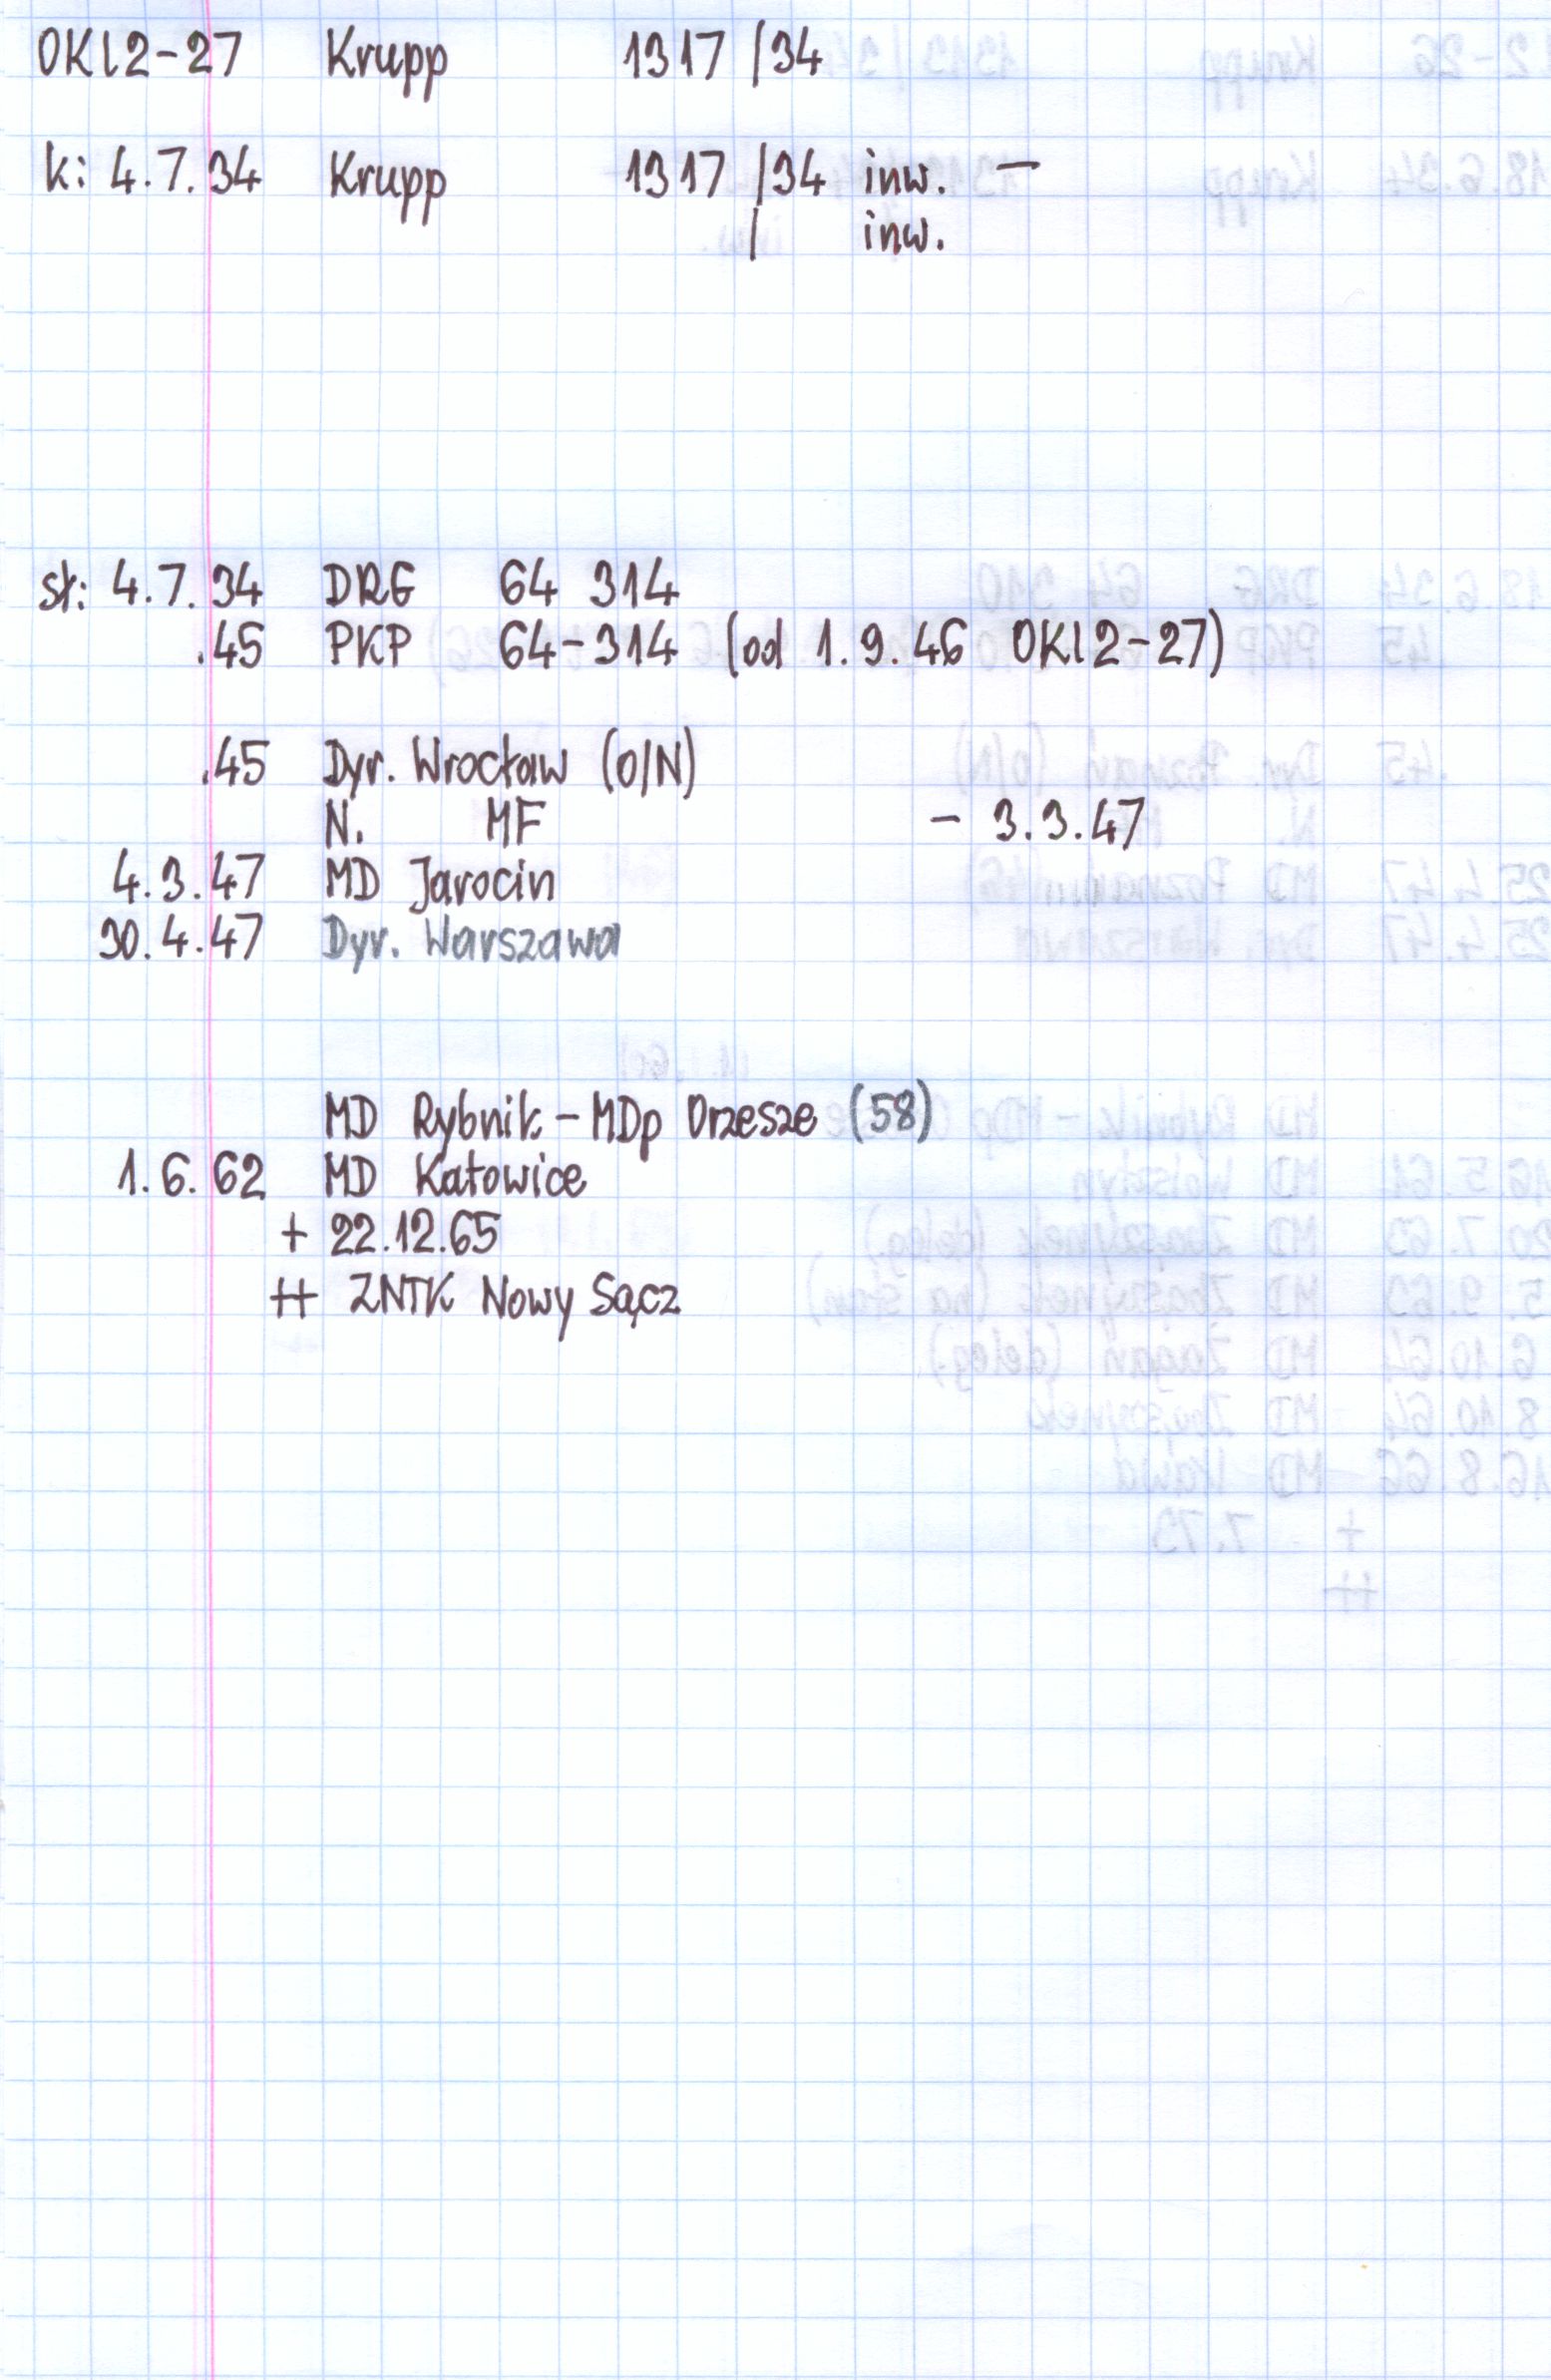 OKl2-27 Krupp 1317/34
k: 4.7.34 Krupp 1317/34 inw. –
/ inw.
st: 4.7.34 DRG 64 314
.45 PKP 64-314 (od 1.9.46 OKl2-27)
.45 Dyr. Wrocław (O/N)
N. MF – 3.3.47
4.3.47 MD Jarocin
30.4.47 Dyr. Warszawa
MD Rybnik – MDp Orzesze (58)
1.6.62 MD Katowice
+ 22.12.65
++ ZNTK Nowy Sącz